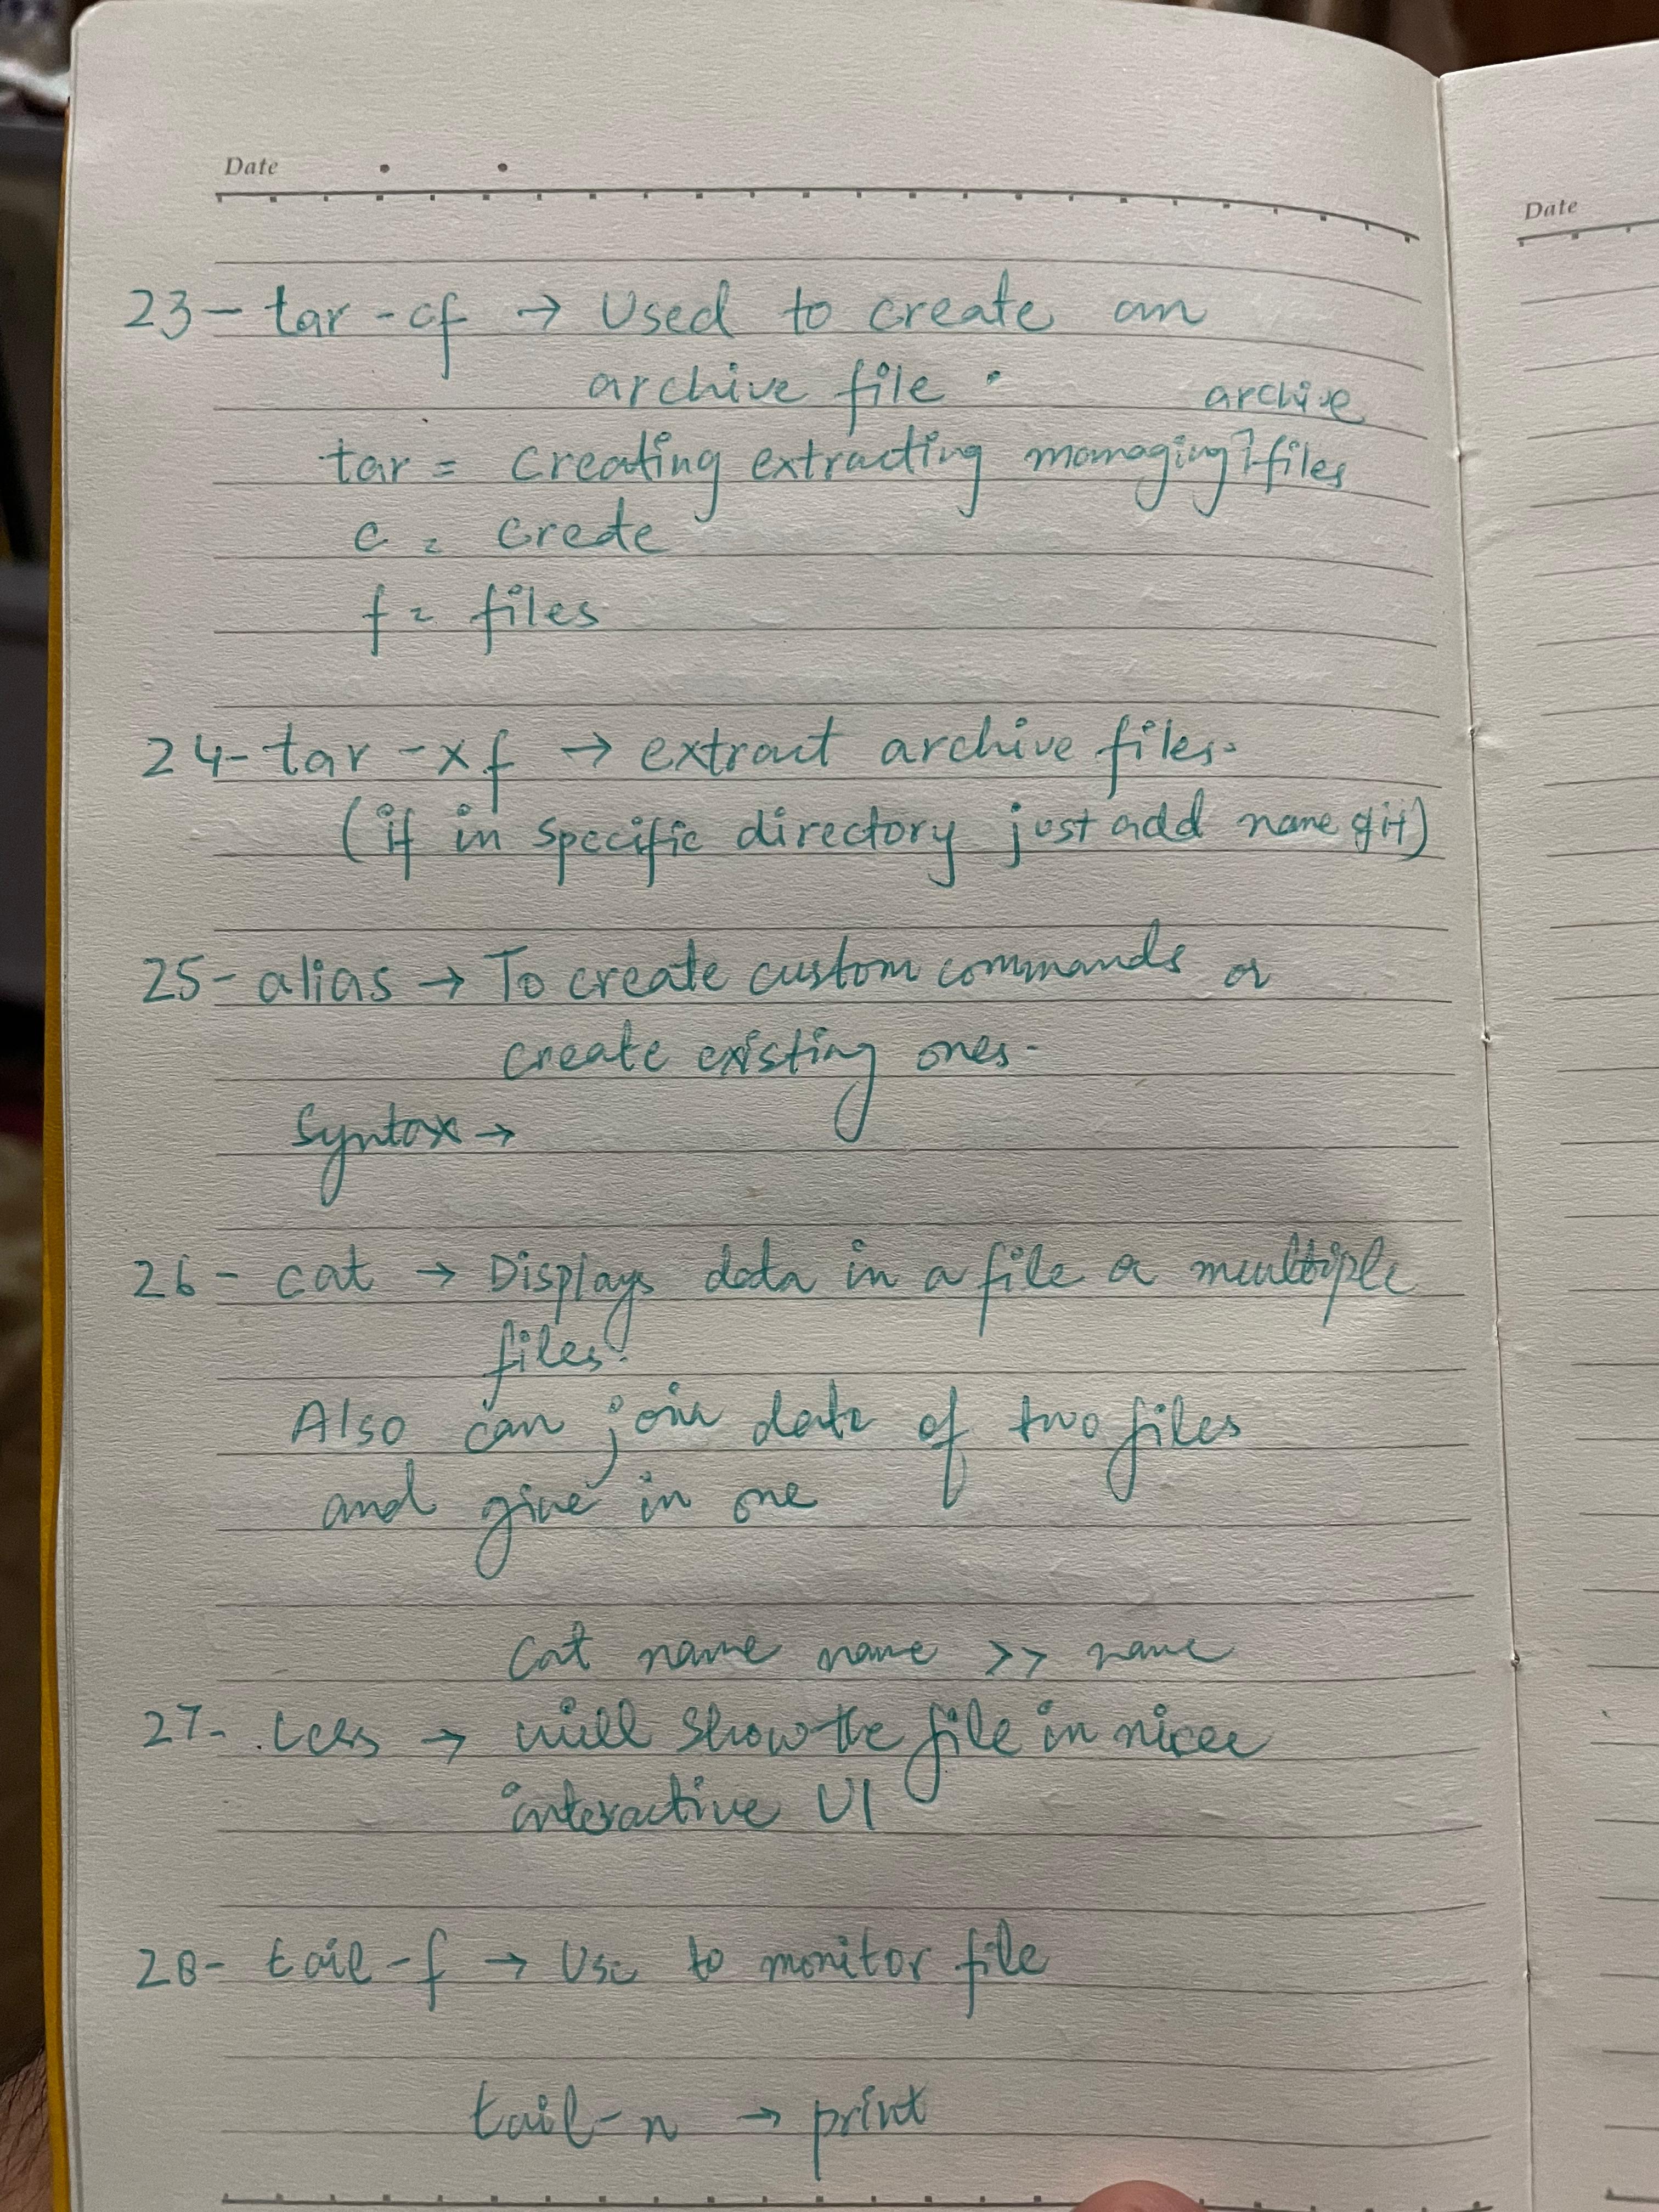 Date
Date
23- tar -cf → Used to create an
archive file.
archive
tar = creating extracting managing files
c = create
f = files
24- tar -xf → extract archive files.
(if in specific directory just add name of it)
25- alias → To create custom commands or
create existing ones.
Syntax →
26- cat → Displays data in a file or multiple
files.
Also can join data of two files
and give in one
Cat name name >> name
27- Less → will show the file in nicer
interactive UI
28- tail -f → Use to monitor file
tail -n → print